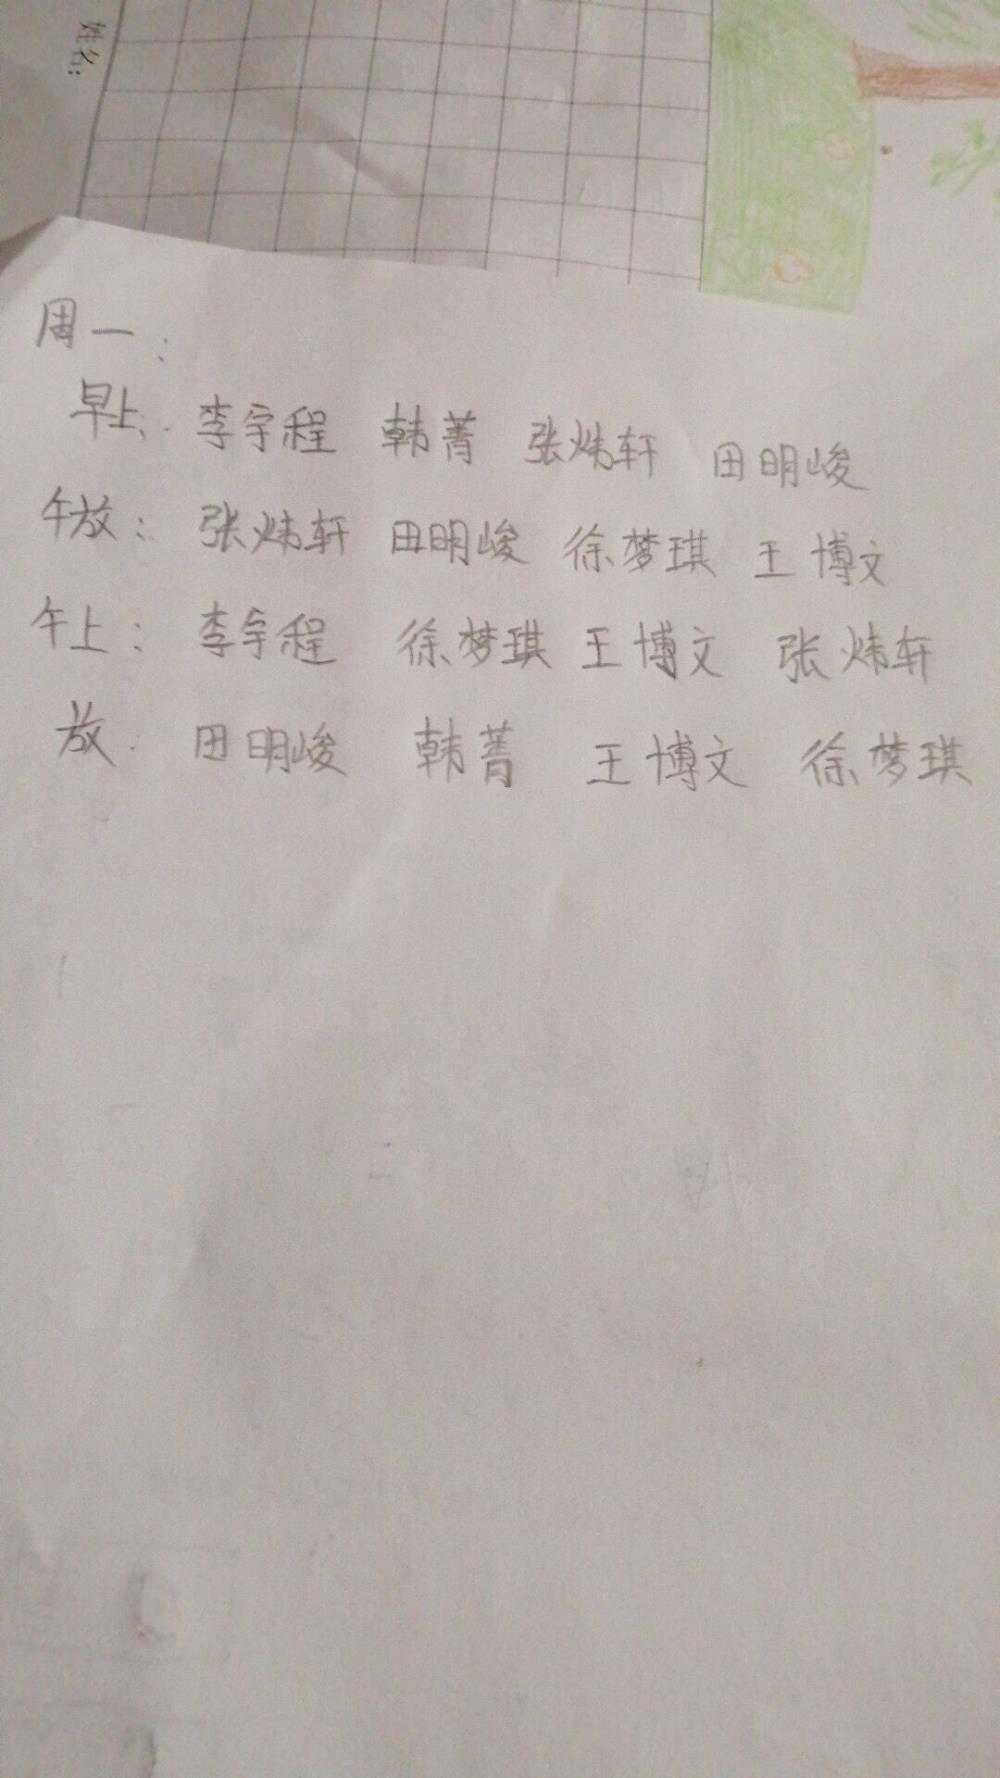 姓名:
周一:
早上: 李宇程 韩菁 张炜轩 田明峻
午放: 张炜轩 田明峻 徐梦琪 王博文
午上: 李宇程 徐梦琪 王博文 张炜轩
放: 田明峻 韩菁 王博文 徐梦琪